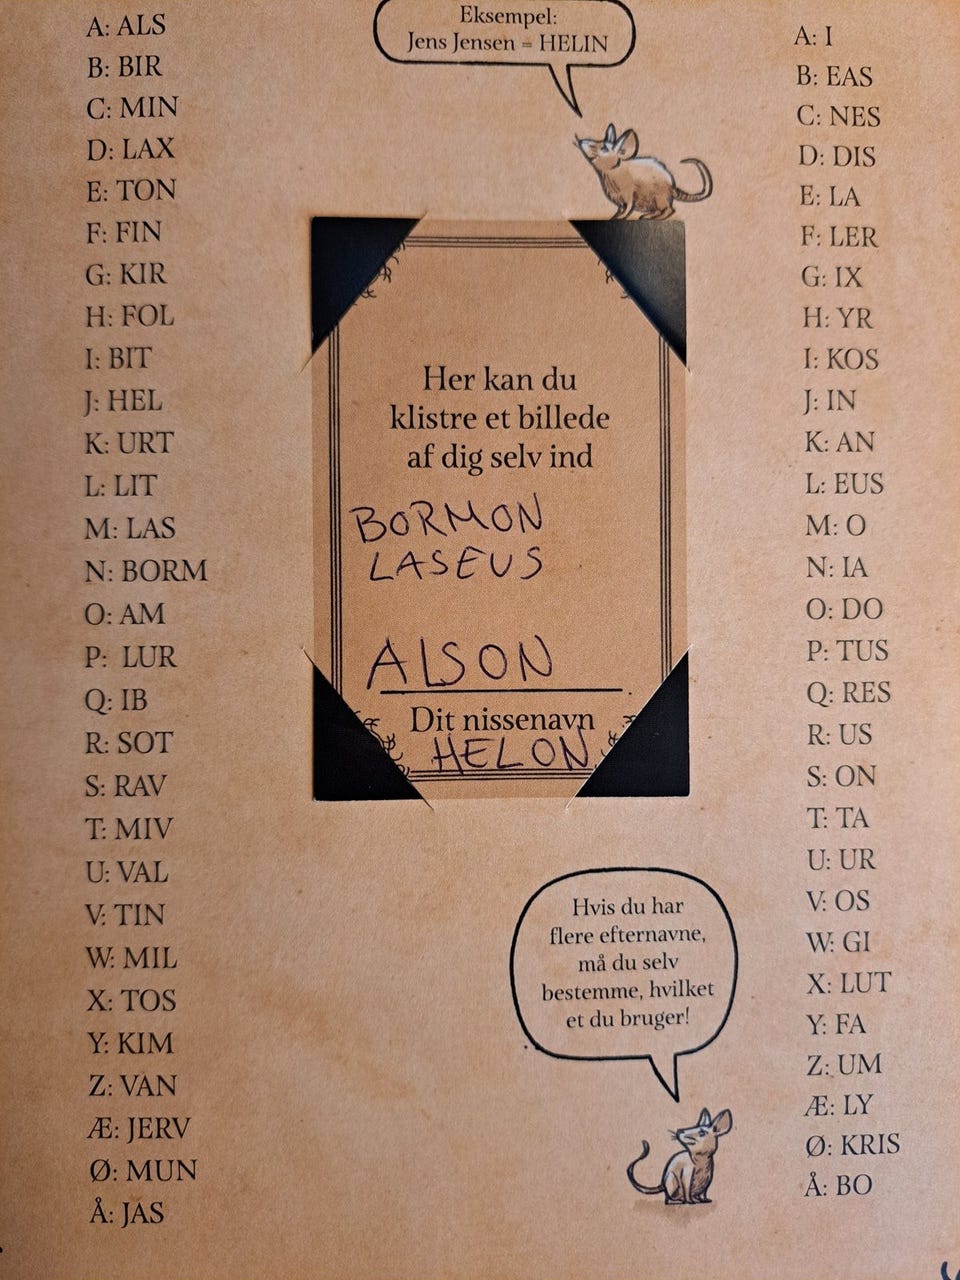 A: ALS
B: BIR
C: MIN
D: LAX
E: TON
F: FIN
G: KIR
H: FOL
I: BIT
J: HEL
K: URT
L: LIT
M: LAS
N: BORM
O: AM
P: LUR
Q: IB
R: SOT
S: RAV
T: MIV
U: VAL
V: TIN
W: MIL
X: TOS
Y: KIM
Z: VAN
Æ: JERV
Ø: MUN
Å: JAS
Eksempel:
Jens Jensen = HELIN
Her kan du
klistre et billede
af dig selv ind
BORMON
LASEUS
ALSON
Dit nissenavn
HELON
Hvis du har
flere efternavne,
må du selv
bestemme, hvilket
et du bruger!
A: I
B: EAS
C: NES
D: DIS
E: LA
F: LER
G: IX
H: YR
I: KOS
J: IN
K: AN
L: EUS
M: O
N: IA
O: DO
P: TUS
Q: RES
R: US
S: ON
T: TA
U: UR
V: OS
W: GI
X: LUT
Y: FA
Z: UM
Æ: LY
Ø: KRIS
Å: BO